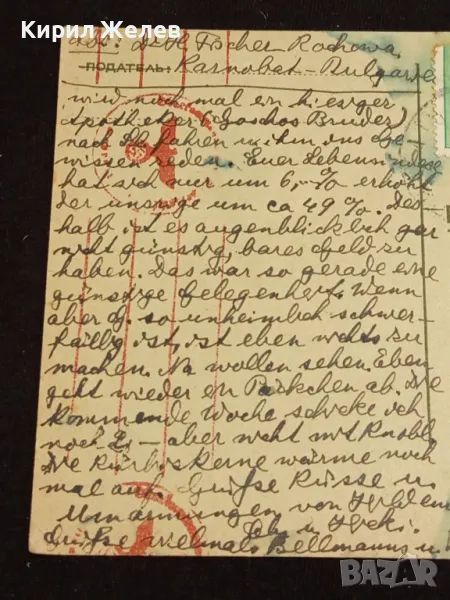 Кирил Желев
Abs: Dr. H. Fischer Rochowa
ПОДАТЕЛЬ: Karnobat-Bulgarie
wird noch mal ein hiesiger
Apotheker (Goschos Bruder)
nach fahren u. ihm ins Ge-
wissen reden. Euer Lebensindex
hat sich nur um 6,-% erhöht
der unsrige um ca 49%. Des
halb ist es augenblicklich gar
nicht günstig, bares Geld zu
haben. Das war so gerade eine
günstige Gelegenheit. Wenn
aber G. so unheimlich schwer-
fällig ist, ist eben nichts zu
machen. Na wollen sehen. Eben
geht wieder ein Päckchen ab. Die
kommende Woche schicke ich
noch 2,- aber nicht mit Knobl.
Die Kürbiskerne wärme noch
mal auf. Grüße Küsse u.
Umarmungen von
u.
Grüße vielmals Bellmanns u.
bazar.bg